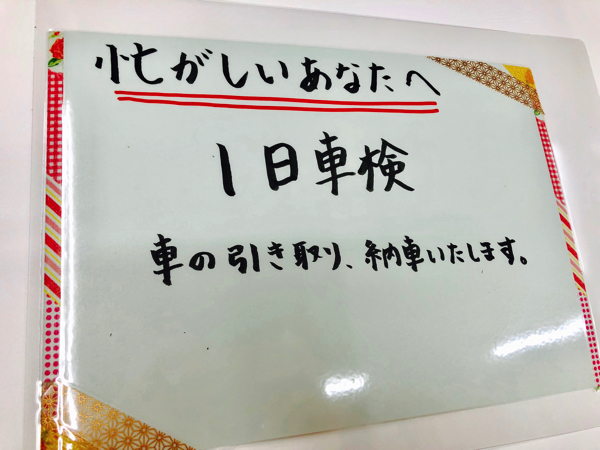 忙がしいあなたへ
1日車検
車の引き取り、納車いたします。